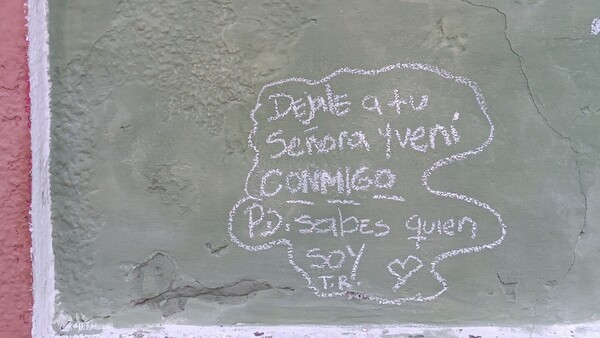 DEJALE a tu
Señora y vení
CONMIGO
P.D. sabes quien
SOY
T.R.